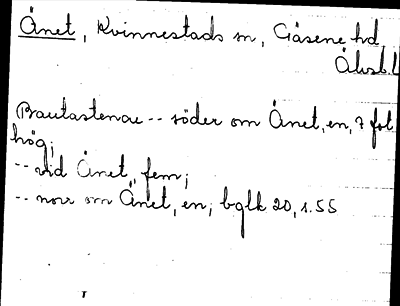 Ånet, Kvinnestads sn, Gäsene hd
Älvsb. l
Bautastenar -- söder om Ånet, en, 7 fot
hög;
-- vid Ånet, fem;
-- norr om Ånet, en; bglk 20, s. 55